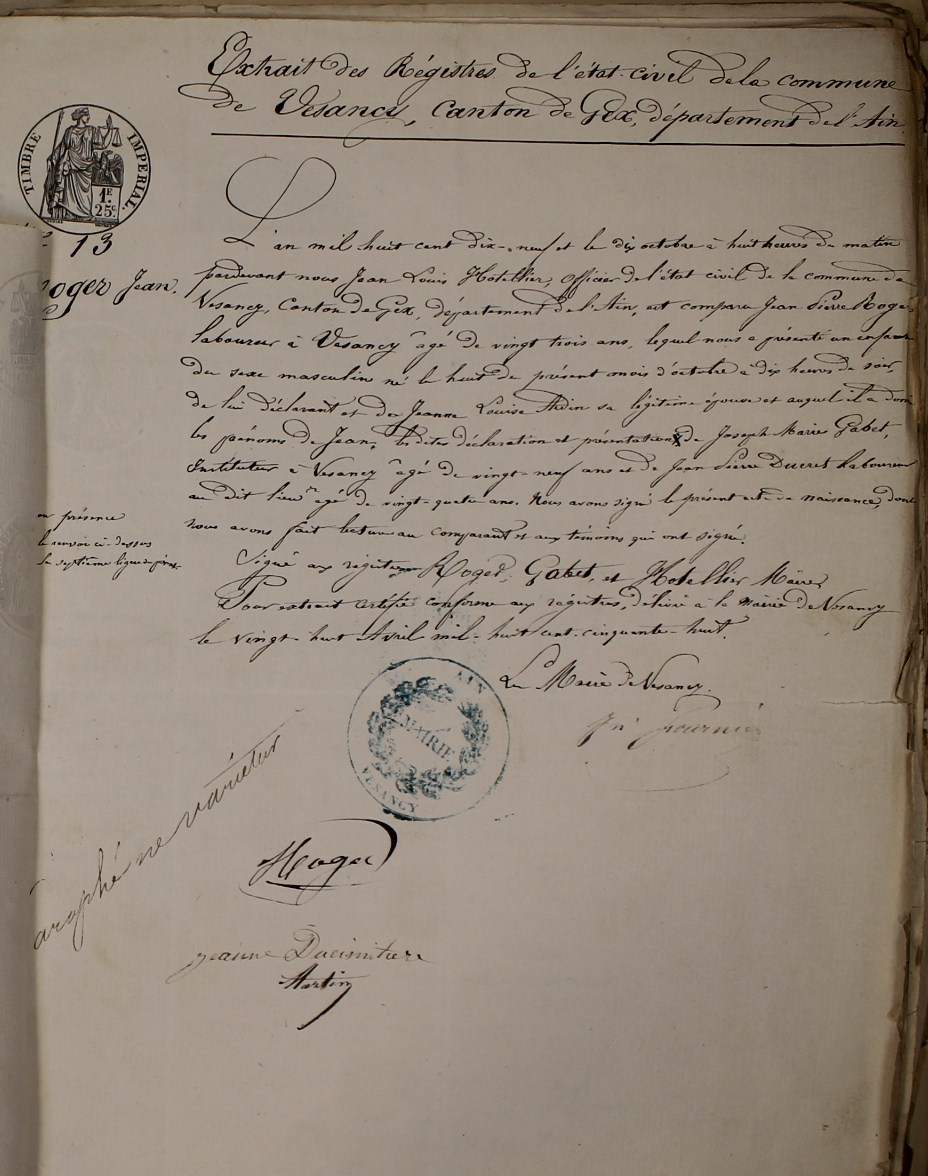 Extrait des Régistres de l'état civil de la commune
de Vesancy, canton de Gex, département de l'Ain.
TIMBRE IMPERIAL.
1F.
25c.
13
oger Jean.
L'an mil huit cent dix-neuf et le dix octobre à huit heures du matin
pardevant nous Jean Louis Hotellier, officier de l'état civil de la commune de
Vesancy, Canton de Gex, département de l'Ain, est comparu Jean Pierre Roger
laboureur à Vesancy âgé de vingt trois ans, lequel nous a présenté un enfant
du sexe masculin né le huit du présent mois d'octobre à dix heures du soir
de lui déclarant et de Jeanne Louise sa légitime épouse et auquel il a donné
les prénoms de Jean, les dites déclaration et présentation X de Joseph Marie Gabet,
Instituteur à Vesancy âgé de vingt-neuf ans et de Jean Pierre Ducret laboureur
au dit lieu âgé de vingt-quatre ans. Nous avons signé le présent acte de naissance, dont
en présence
nous avons fait lecture au comparant et aux témoins qui ont signé.
le renvoi ci-dessus
la septième ligne
Signé aux régistres Roger, Gabet, et Hotellier Maire
Pour extrait certifié conforme aux régistres, délivré à la Mairie de Vesancy
le vingt-huit Avril mil-huit cent-cinquante-huit.
Le Maire de Vesancy.
Fournier
AIN
MAIRIE
VESANCY
araphé ne varietur
Roger
jeanne Ducimitiere
Martin